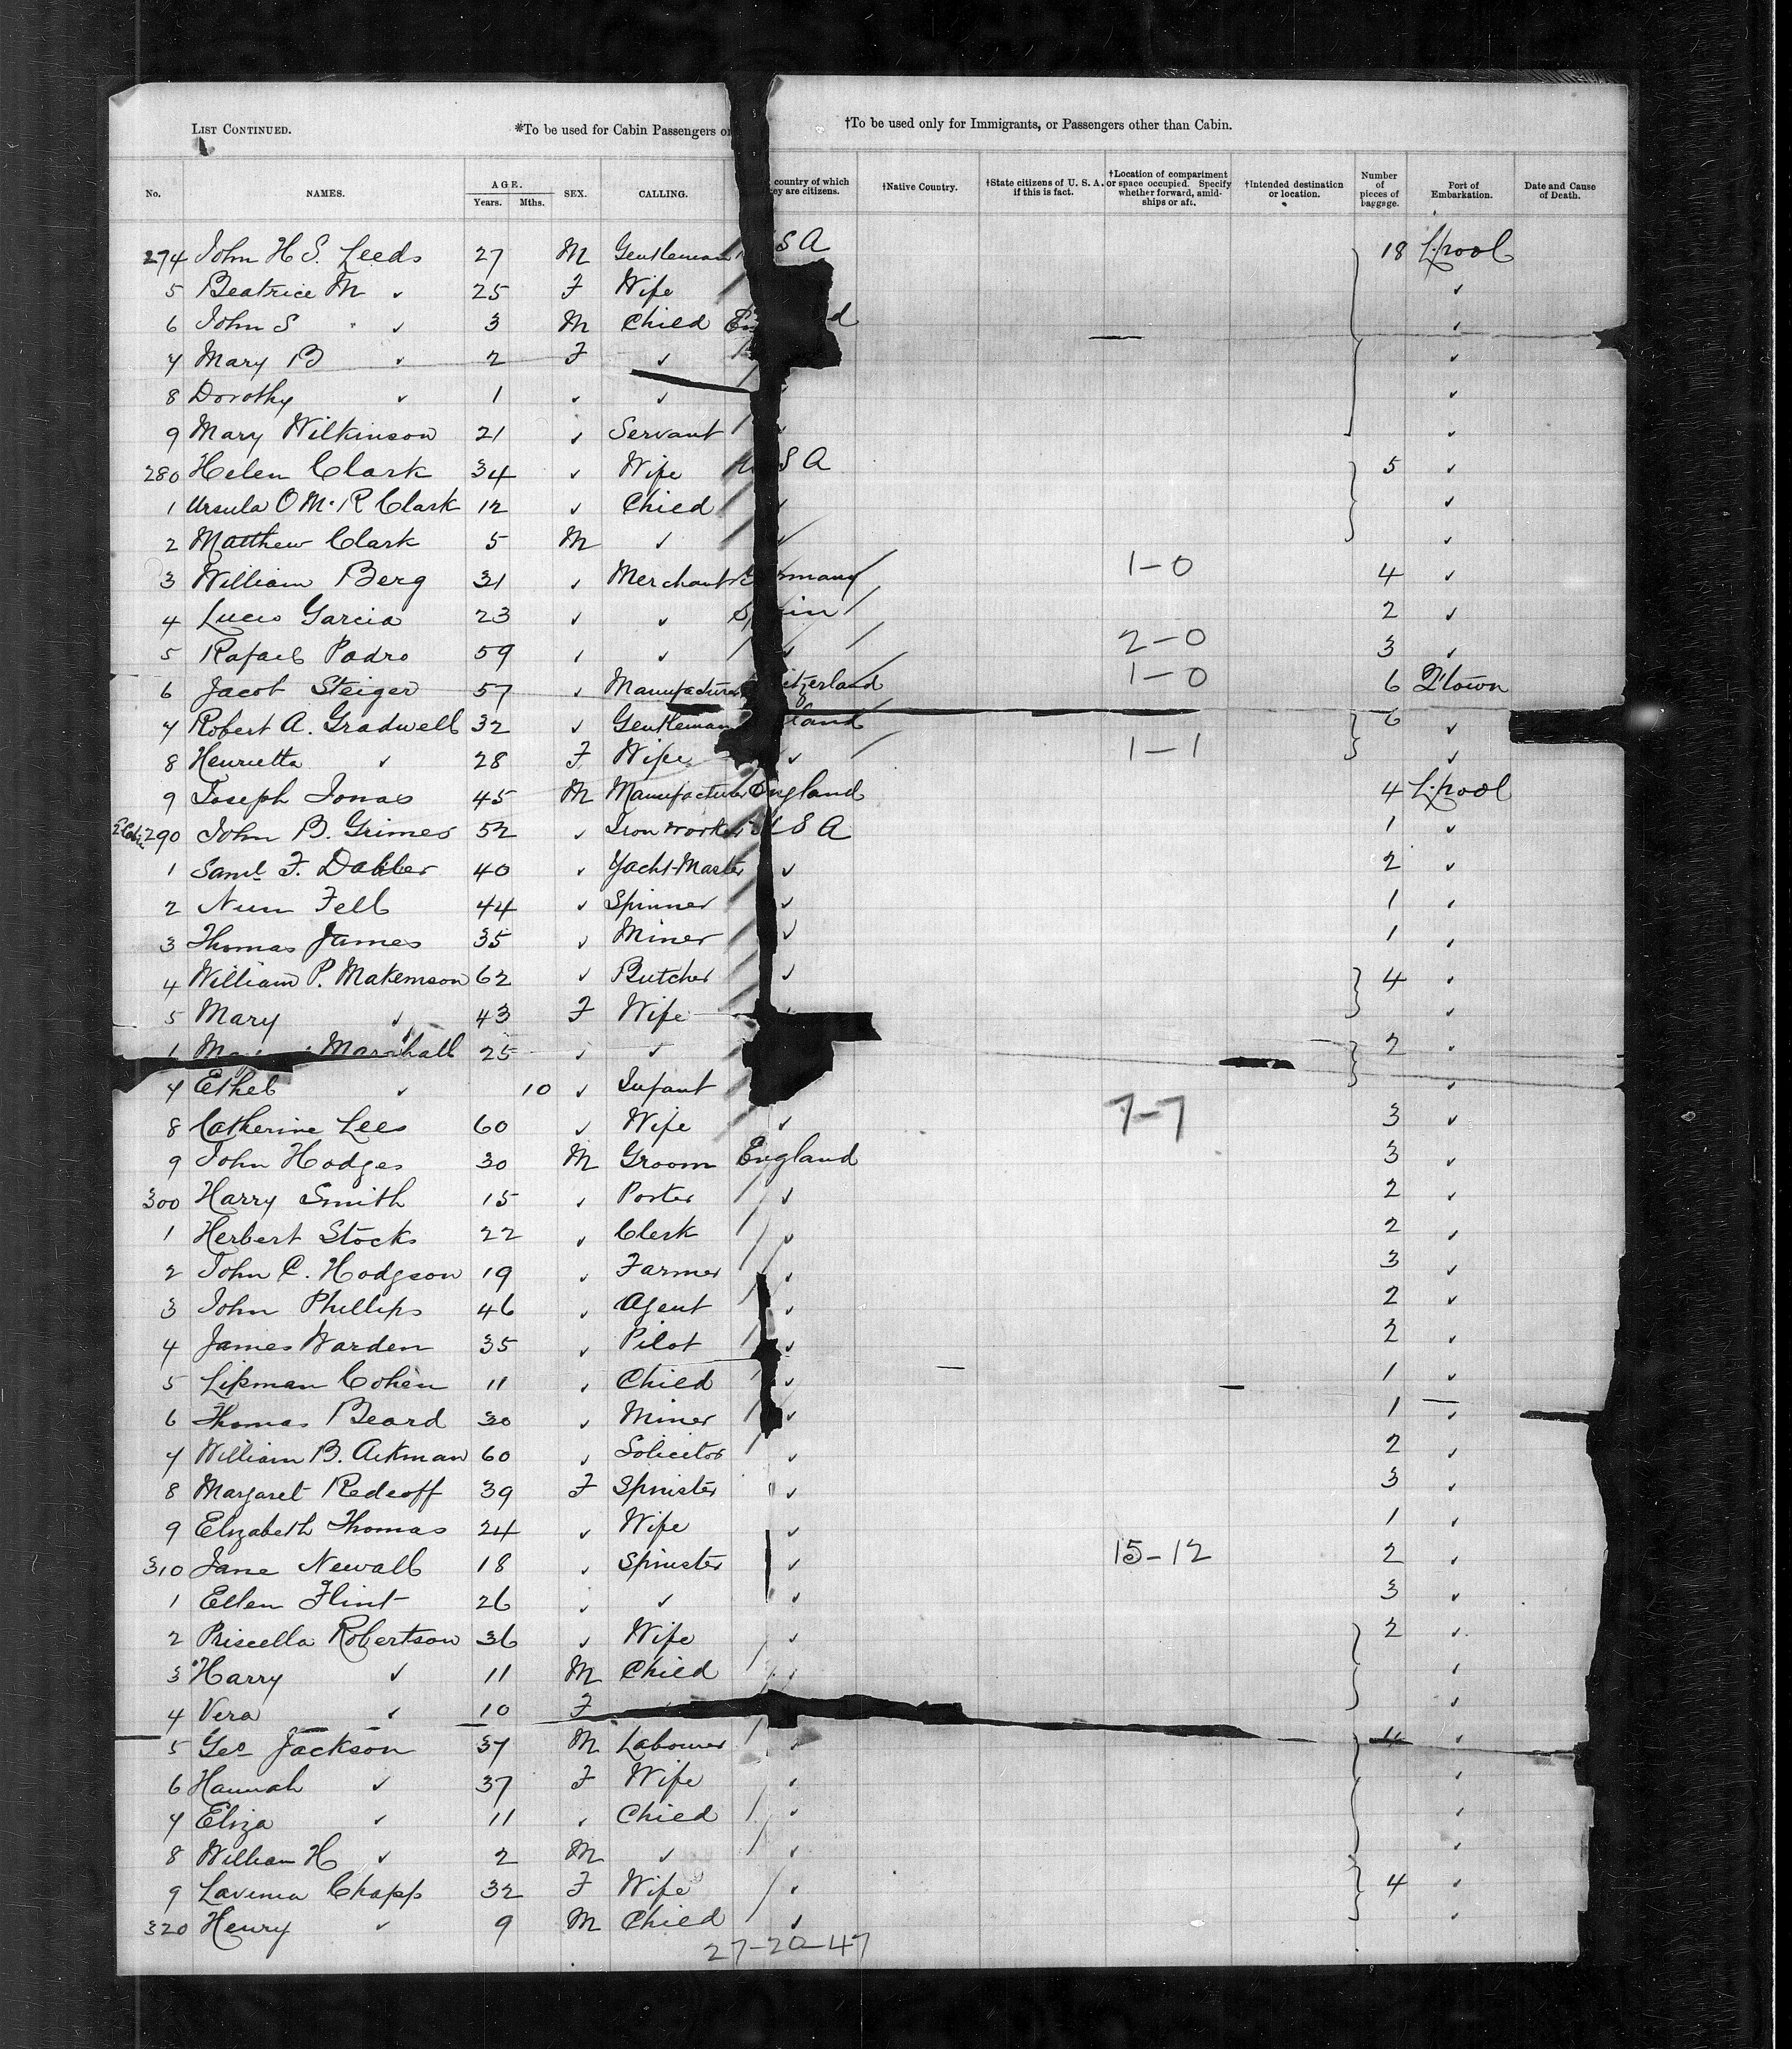 LIST CONTINUED. *To be used for Cabin Passengers †To be used only for Immigrants, or Passengers other than Cabin.
No. NAMES. AGE. Years. Mths. SEX. CALLING. country of which are citizens. †Native Country. †State citizens of U. S. A. if this is fact. †Location of compartment or space occupied. Specify whether forward, amid-ships or aft. †Intended destination or location. Number of pieces of baggage. Port of Embarkation. Date and Cause of Death.
274 John H S. Leeds 27 M Gentleman S A 18 L'pool
5 Beatrice M ✓ 25 F Wife ✓
6 John S ✓ 3 M Child ✓
7 Mary B ✓ 2 F ✓ ✓
8 Dorothy ✓ 1 ✓ ✓ ✓
9 Mary Wilkinson 21 ✓ Servant ✓
280 Helen Clark 34 ✓ Wife S A 5 ✓
1 Ursula O M. R Clark 12 ✓ Child ✓ ✓
2 Matthew Clark 5 M ✓ ✓ ✓
3 William Berg 31 ✓ Merchant 1-0 4 ✓
4 Garcia 23 ✓ ✓ 2 ✓
5 Rafael Padro 59 ✓ ✓ ✓ 2-0 3 ✓
6 Jacob Steiger 57 ✓ Manufacturer 1-0 6 Q'town
7 Robert A. Gradwell 32 ✓ Gentleman 6 ✓
8 Henrietta ✓ 28 F Wife ✓ 1-1 ✓
9 Joseph Jonas 45 M Manufacturer England 4 L'pool
290 John B. Grimes 52 ✓ Iron Worker U S A 1 ✓
1 Saml F. Dabber 40 ✓ Yacht-Master ✓ 2 ✓
2 Fell 44 ✓ Spinner ✓ 1 ✓
3 Thomas James 35 ✓ Miner ✓ 1 ✓
4 William P. Makemson 62 ✓ Butcher ✓ 4 ✓
5 Mary ✓ 43 F Wife ✓
Marshall 25 ✓ ✓ 2 ✓
7 Ethel ✓ 10 ✓ Infant ✓
8 Catherine Lees 60 ✓ Wife ✓ 7-7 3 ✓
9 John Hodges 30 M Groom England 3 ✓
300 Harry Smith 15 ✓ Porter ✓ 2 ✓
1 Herbert Stocks 22 ✓ Clerk ✓ 2 ✓
2 John C. Hodgson 19 ✓ Farmer ✓ 3 ✓
3 John Phillips 46 ✓ Agent ✓ 2 ✓
4 James Warden 35 ✓ Pilot ✓ 2 ✓
5 Lipman Cohen 11 ✓ Child ✓ 1 ✓
6 Thomas Beard 30 ✓ Miner ✓ 1 ✓
7 William B. Aikman 60 ✓ Solicitor ✓ 2 ✓
8 Margaret 39 F Spinster ✓ 3 ✓
9 Elizabeth Thomas 24 ✓ Wife ✓ 1 ✓
310 Jane Newall 18 ✓ Spinster ✓ 15-12 2 ✓
1 Ellen Flint 26 ✓ ✓ ✓ 3 ✓
2 Priscella Robertson 36 ✓ Wife ✓ 2 ✓
3 Harry ✓ 11 M Child ✓ ✓
4 Vera ✓ 10 F ✓
5 Geo Jackson 37 M Labourer ✓ 4 ✓
6 Hannah ✓ 37 F Wife ✓ ✓
7 Eliza ✓ 11 ✓ Child ✓ ✓
8 William H ✓ 2 M ✓ ✓ ✓
9 Lavinia Chapp 32 F Wife ✓ 4 ✓
320 Henry ✓ 9 M Child ✓ ✓
27-20-47